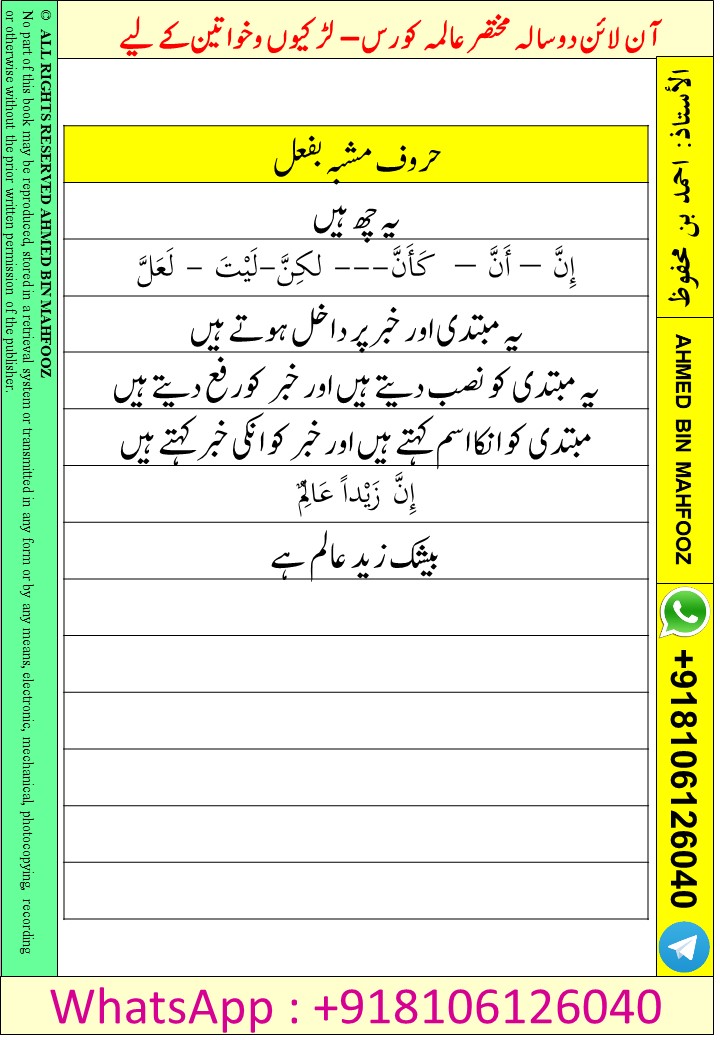 آن لائن دو سالہ مختصر عالمہ کورس – لڑکیوں و خواتین کے لیے
حروف مشبہ بفعل
یہ چھ ہیں
إِنَّ – أَنَّ – كَأَنَّ --- لكِنَّ-لَيْتَ - لَعَلَّ
یہ مبتدی اور خبر پر داخل ہوتے ہیں
یہ مبتدی کو نصب دیتے ہیں اور خبر کو رفع دیتے ہیں
مبتدی کو انکا اسم کہتے ہیں اور خبر کو انکی خبر کہتے ہیں
إِنَّ زَيْداً عَالِمٌ
بیشک زید عالم ہے
الأستاذ: احمد بن محفوظ
AHMED BIN MAHFOOZ
+918106126040
© ALL RIGHTS RESERVED AHMED BIN MAHFOOZ
No part of this book may be reproduced, stored in a retrieval system or transmitted in any form or by any means, electronic, mechanical, photocopying, recording
or otherwise without the prior written permission of the publisher.
WhatsApp : +918106126040